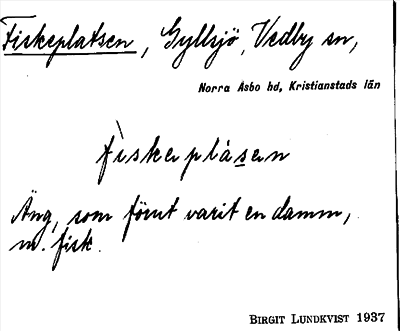 Fiskeplatsen, Gyllsjö, Vedby sn,
Norra Åsbo hd, Kristianstads län
fìskeplásen
Äng, som förut varit en damm,
m. fisk.
BIRGIT LUNDKVIST 1937